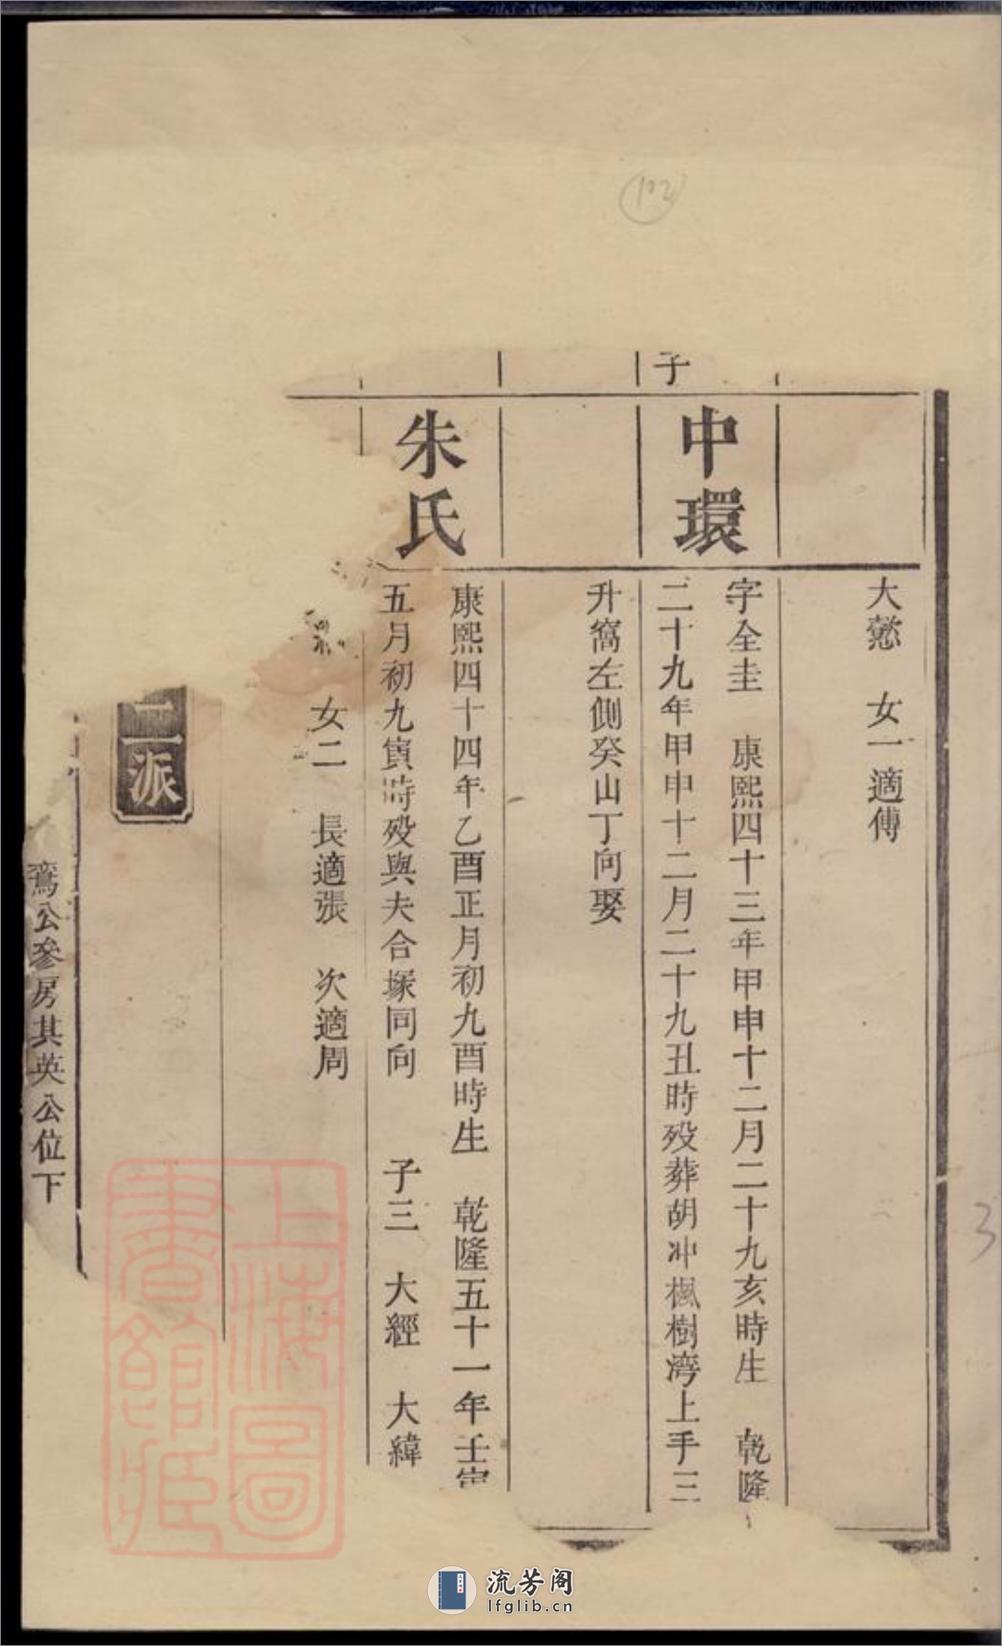 102
大懲　女一適傅
子
中環
字全圭　康熙四十三年甲申十二月二十九亥時生　乾隆
二十九年甲申十二月二十九丑時殁葬胡冲楓樹湾上手三
升窩左側癸山丁向娶
朱氏
康熙四十四年乙酉正月初九酉時生　乾隆五十一年壬寅
五月初九寅時殁與夫合塚同向　子三　大經　大緯
女二　長適張　次適周
二派
鸞公參房其英公位下
3
上海圖書館藏
流芳阁
lfglib.cn